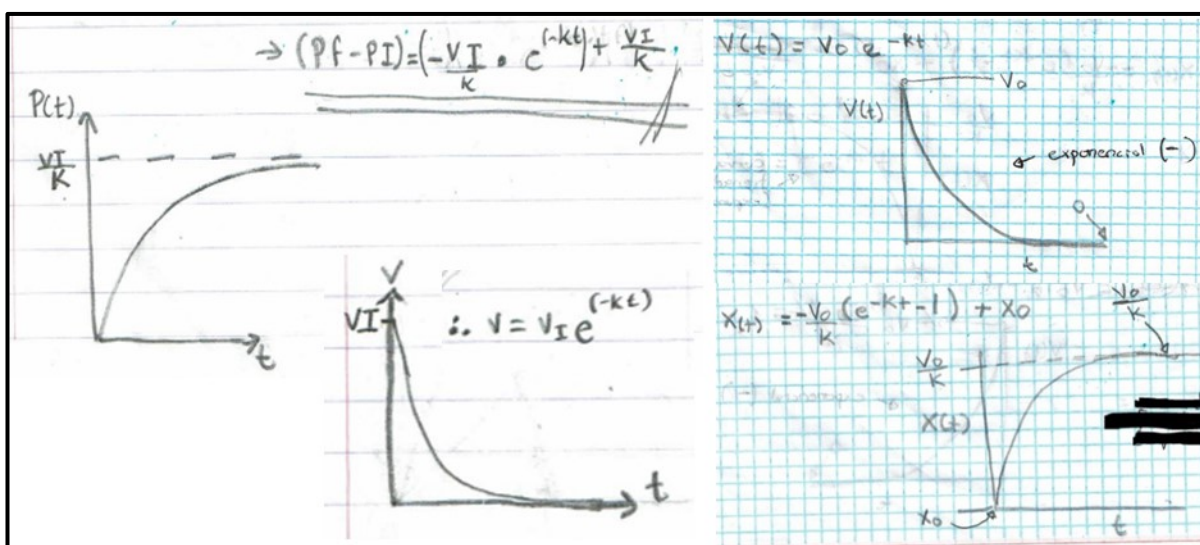 → (Pf-PI)=(-VI/K • e^(-kt))+ VI/K
P(t)
VI/K
t
V
VI
∴ V = VI e^(-kt)
t
V(t) = V0 e^-kt
V0
V(t)
exponencial (-)
0
t
X(t) = -V0/K (e^-kt -1) + X0
V0/K
V0/K
X(t)
X0
t